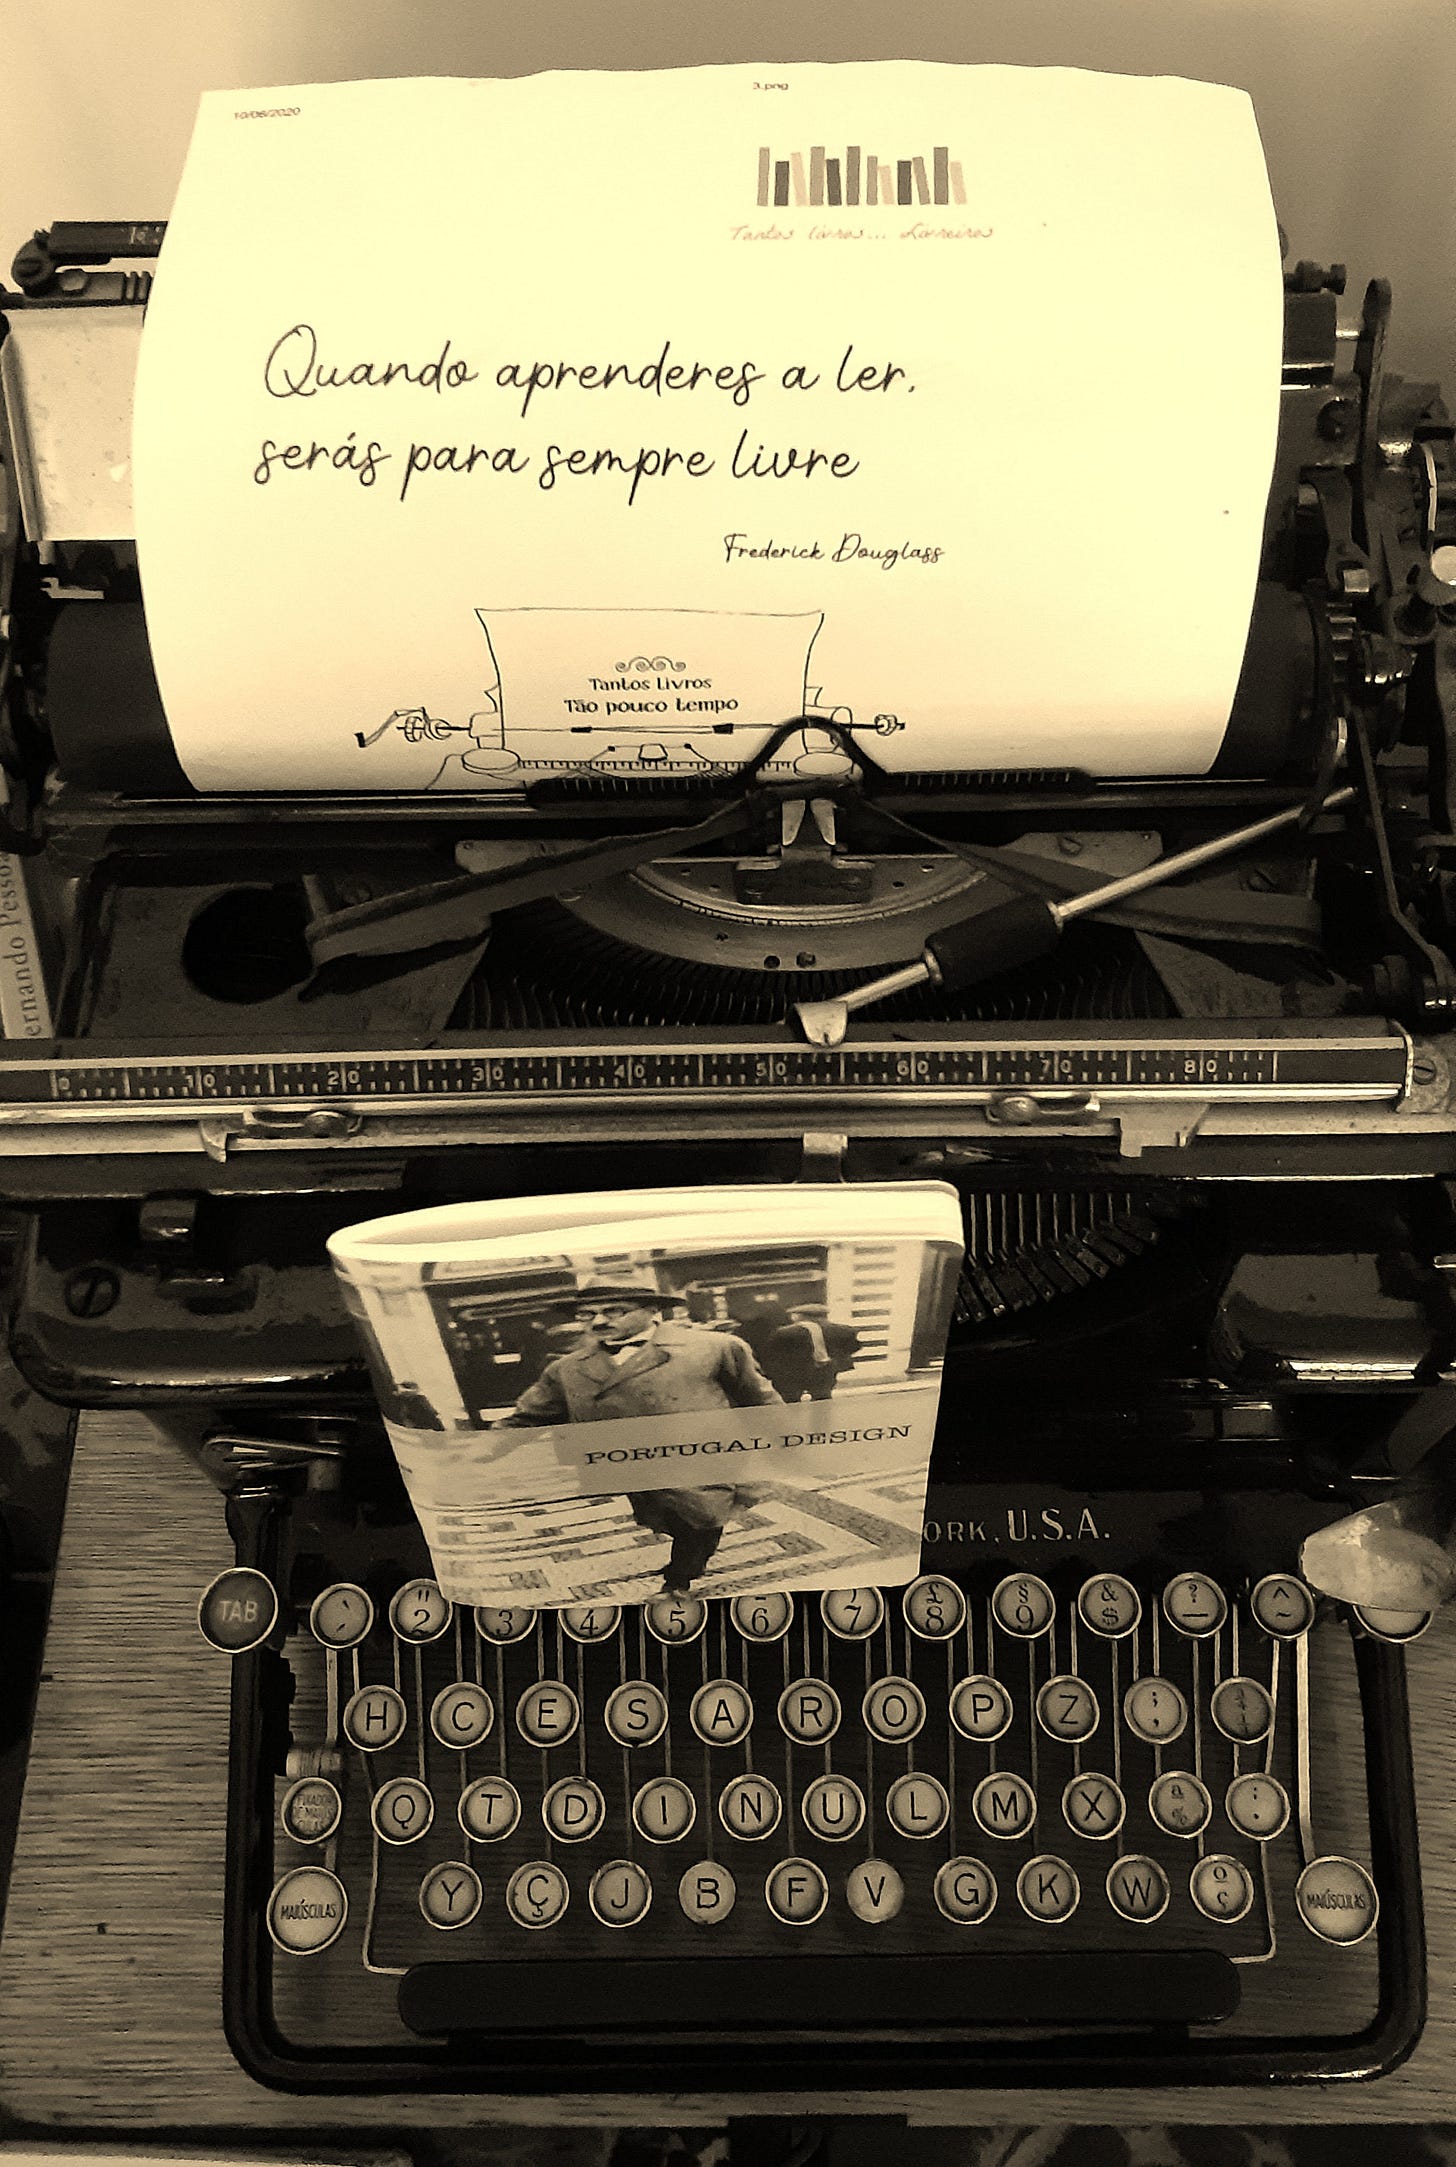 10/06/2020
3.png
Tantos livros... Livreiros
Quando aprenderes a ler,
serás para sempre livre
Frederick Douglass
Tantos Livros
Tão pouco tempo
ernando Pessoa
0 10 20 30 40 50 60 70 80
PORTUGAL DESIGN
ORK, U.S.A.
TAB " 2 3 4 5 6 7 £ 8 § 9 & $ ? _ ^ ~
H C E S A R O P Z ; ,
FIXADOR DE MAIÚSCULAS Q T D I N U L M X ª % : .
MAIÚSCULAS Y Ç J B F V G K W º ç MAIÚSCULAS